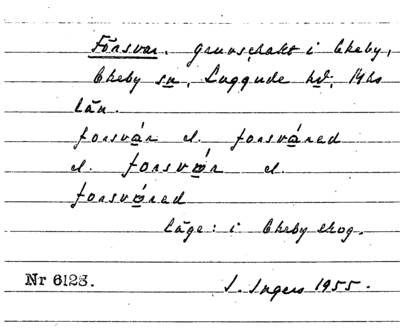 Försvar. gruvschakt i Ekeby,
Ekeby sn, Luggude hd, Mhs
län.
forsvár el. forsváred
el. forsvǿr el.
forsvǿred
Läge: i Ekeby skog.
Nr 6128. I. Ingers 1955.